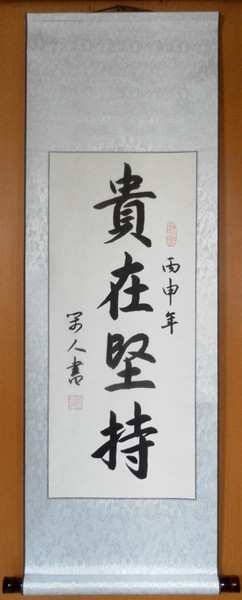 貴在堅持
丙申年
罗人書